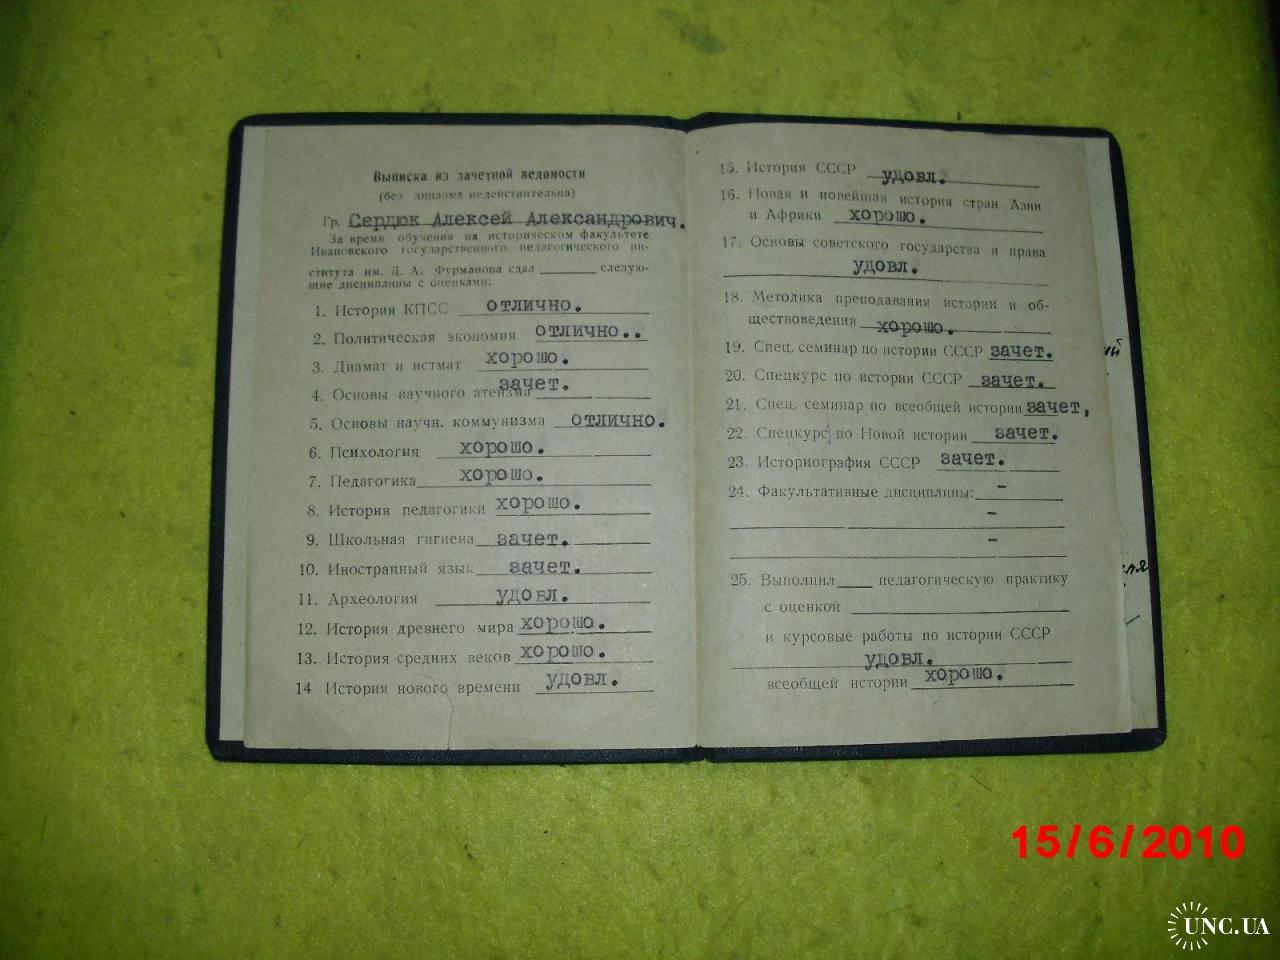 Выписка из зачетной ведомости
(без диплома недействительна)
Гр. Сердюк Алексей Александрович.
За время обучения на историческом факультете
Ивановского государственного педагогического ин-
ститута им. Д. А. Фурманова сдал следую-
щие дисциплины с оценками:
1. История КПСС отлично.
2. Политическая экономия отлично..
3. Диамат и истмат хорошо.
4. Основы научного атеизма зачет.
5. Основы научн. коммунизма отлично.
6. Психология хорошо.
7. Педагогика хорошо.
8. История педагогики хорошо.
9. Школьная гигиена зачет.
10. Иностранный язык зачет.
11. Археология удовл.
12. История древнего мира хорошо.
13. История средних веков хорошо.
14 История нового времени удовл.
15. История СССР удовл.
16. Новая и новейшая история стран Азии
и Африки хорошо.
17. Основы советского государства и права
удовл.
18. Методика преподавания истории и об-
ществоведения хорошо.
19. Спец. семинар по истории СССР зачет.
20. Спецкурс по истории СССР зачет.
21. Спец. семинар по всеобщей истории зачет,
22. Спецкурс по Новой истории зачет.
23. Историография СССР зачет.
24. Факультативные дисциплины: –
–
–
25. Выполнил педагогическую практику
с оценкой
и курсовые работы по истории СССР
удовл.
всеобщей истории хорошо.
15/6/2010
UNC.UA